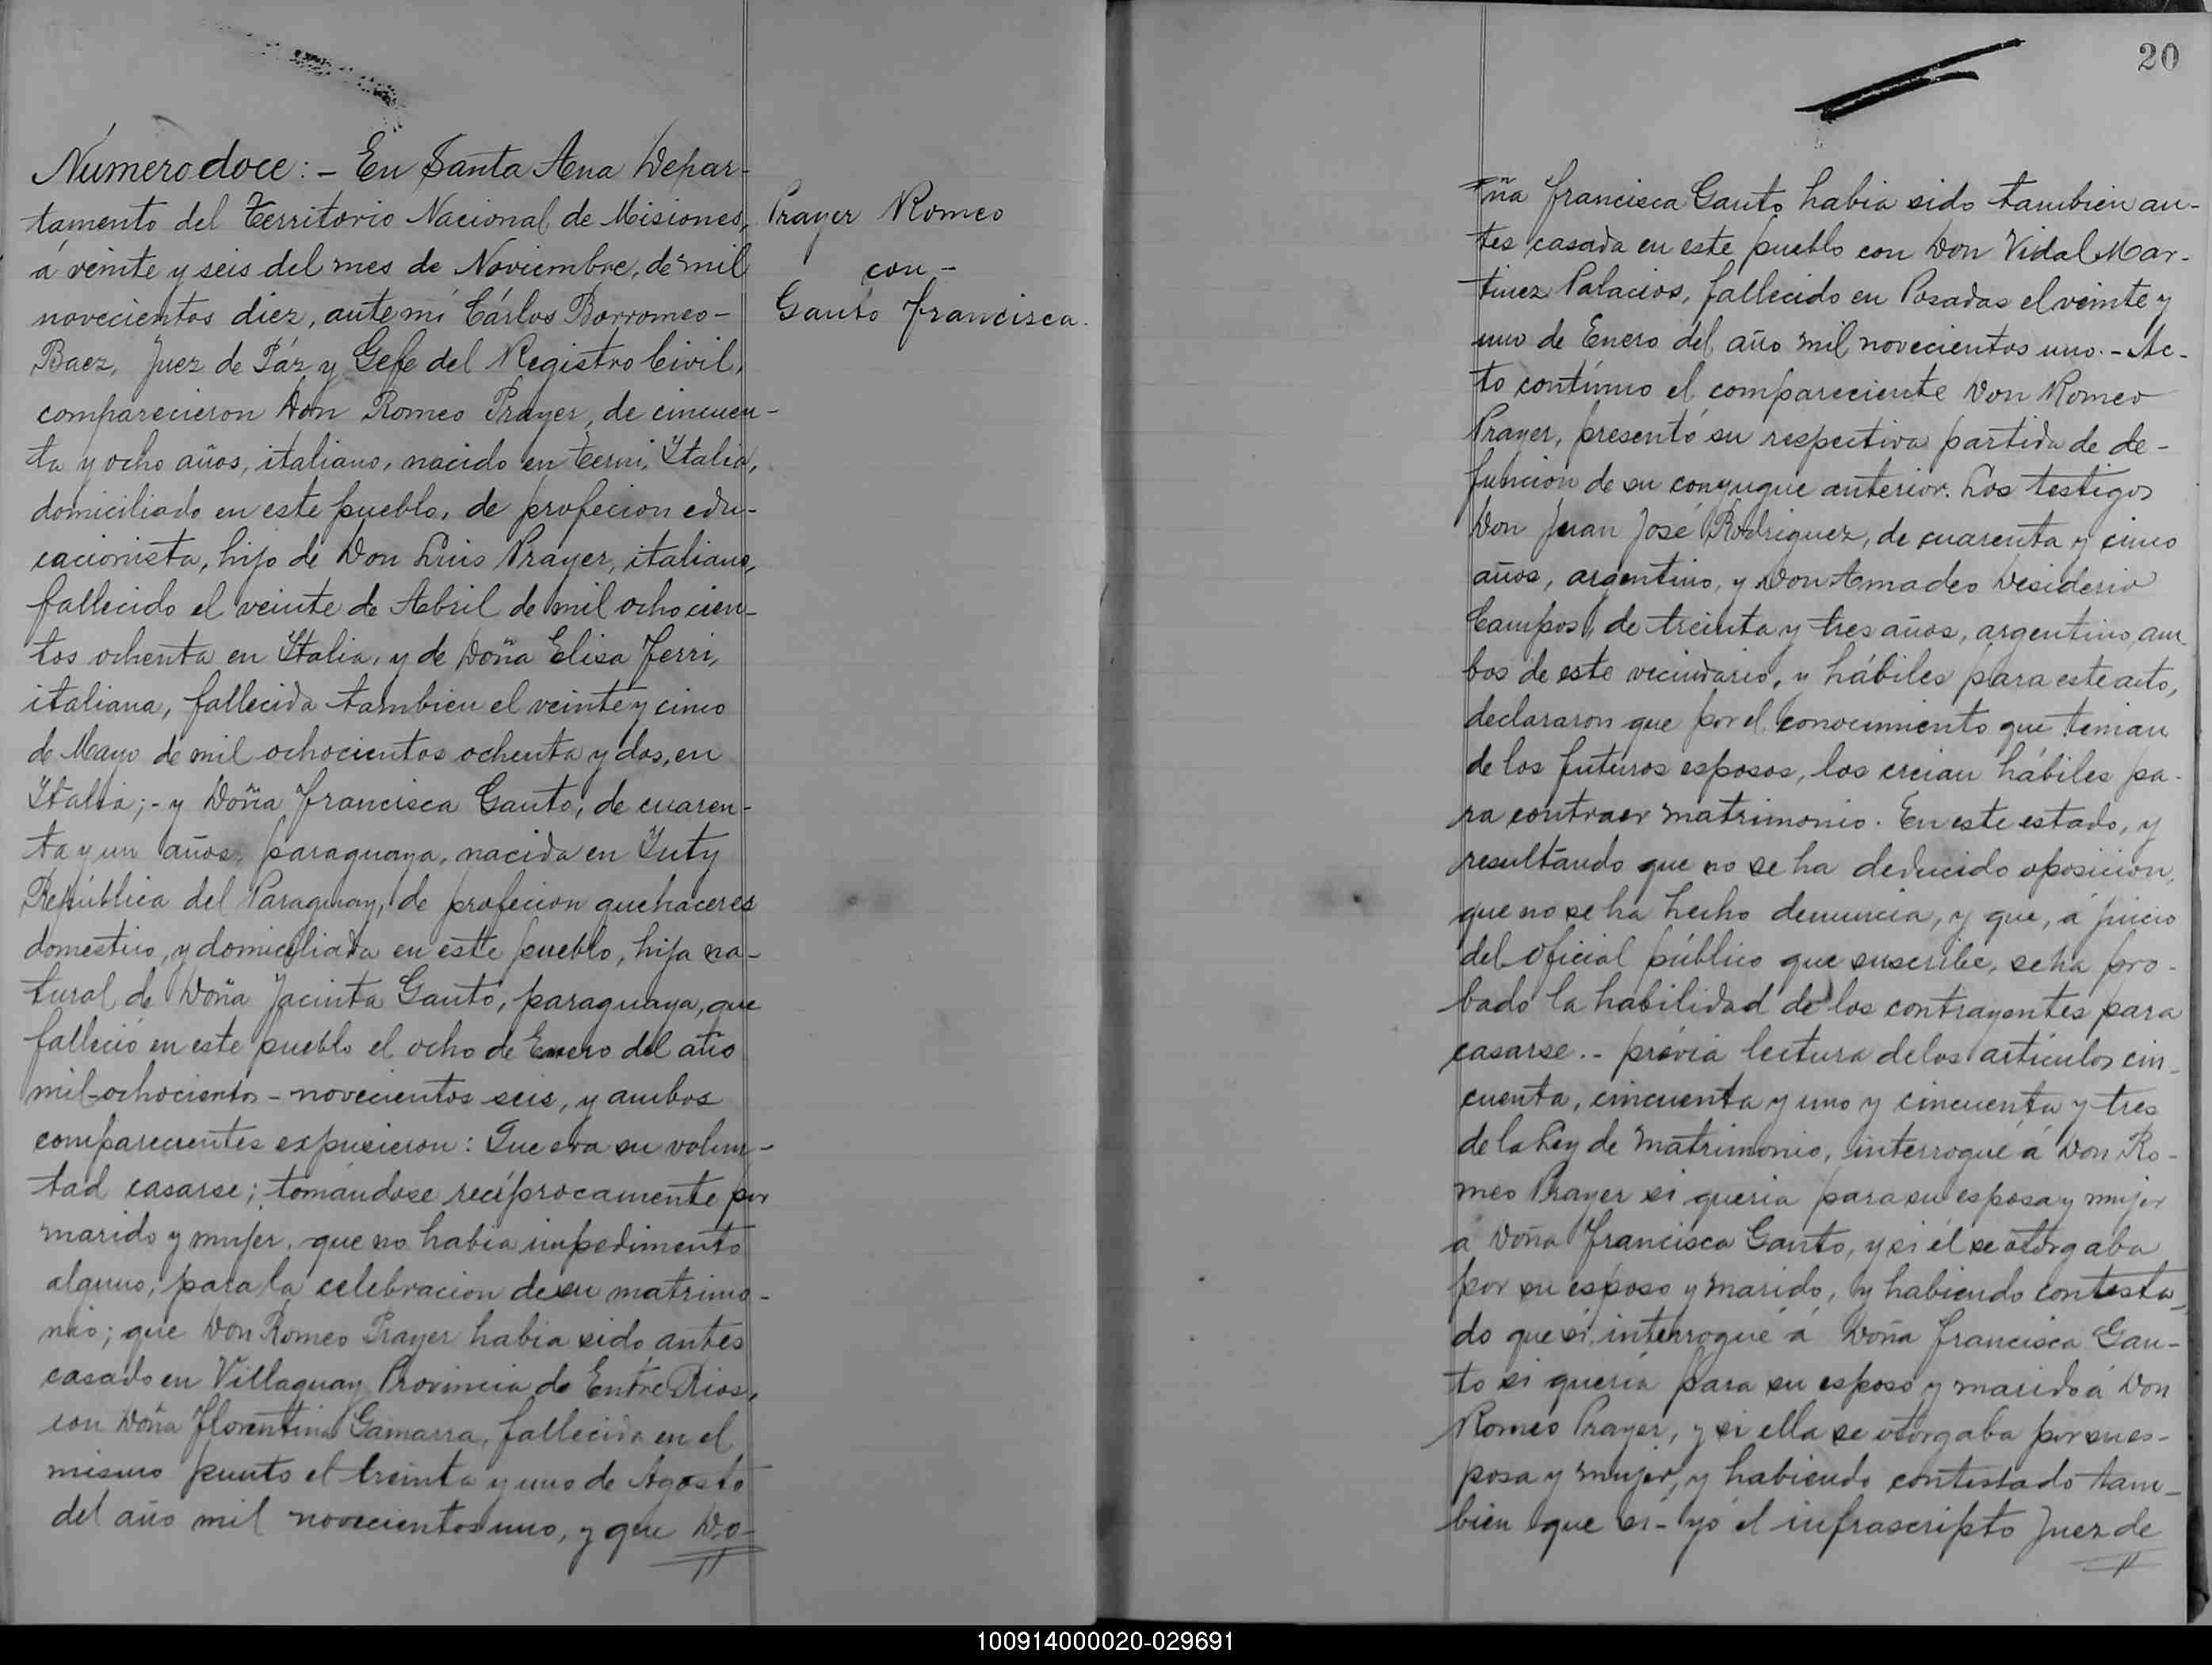 Número doce: - En Santa Ana Depar-
tamento del Territorio Nacional de Misiones,
á veinte y seis del mes de Noviembre, de mil
novecientos diez, ante mí Cárlos Borromeo -
Baez, Juez de Páz y Gefe del Registro Civil,
comparecieron Don Romeo Prayer, de cincuen-
ta y ocho años, italiano, nacido en Terni, Italia,
domiciliado en este pueblo, de profecion edu-
cacionista, hijo de Don Luis Prayer, italiano,
fallecido el veinte de Abril de mil ochocien-
tos ochenta en Italia, y de Doña Elisa Ferri,
italiana, fallecida tambien el veinte y cinco
de Mayo de mil ochocientos ochenta y dos, en
Italia; - y Doña Francisca Gauto, de cuaren-
ta y un años, paraguaya, nacida en Yuty
República del Paraguay, de profecion quehaceres
domestico, y domiciliada en este pueblo, hija na-
tural de Doña Jacinta Gauto, paraguaya, que
falleció en este pueblo el ocho de Enero del año
mil ochocientos - novecientos seis, y ambos
comparecientes expusieron: Que era su volun-
tad casarse; tomándose recíprocamente por
marido y mujer, que no habia impedimento
alguno, para la celebracion de su matrimo-
nio; que Don Romeo Prayer habia sido antes
casado en Villaguay Provincia de Entre Rios,
con Doña Florentina Gamarra, fallecida en el
mismo punto el treinta y uno de Agosto
del año mil novecientos uno, y que Do-
Prayer Romeo
con -
Gauto Francisca.
20
ña Francisca Gauto habia sido tambien an-
tes casada en este pueblo con Don Vidal Mar-
tinez Palacios, fallecido en Posadas el veinte y
uno de Enero del año mil novecientos uno. - Ac-
to contínuo el compareciente Don Romeo
Prayer, presentó su respectiva partida de de-
funcion de su conyugue anterior. Los testigos
Don Juan José Rodriguez, de cuarenta y cinco
años, argentino, y Don Amadeo Desiderio
Campos, de treinta y tres años, argentino, am-
bos de este vecindario, y hábiles para este acto,
declararon que por el conocimiento que tenian
de los futuros esposos, los creian hábiles pa-
ra contraer matrimonio. En este estado, y
resultando que no se ha deducido oposicion,
que no se ha hecho denuncia, y que, á juicio
del oficial público que suscribe, se ha pro-
bado la habilidad de los contrayentes para
casarse. - prévia lectura de los artículos cin-
cuenta, cincuenta y uno y cincuenta y tres
de la Ley de Matrimonio, interrogué á Don Ro-
meo Prayer si queria para su esposa y mujer
a Doña Francisca Gauto, y si él se otorgaba
por su esposo y marido, y habiendo contesta-
do que sí, interrogué á Doña Francisca Gau-
to si queria para su esposo y marido á Don
Romeo Prayer, y si ella se otorgaba por su es-
posa y mujer, y habiendo contestado tam-
bien que sí - yo el infrascripto Juez de
100914000020-029691